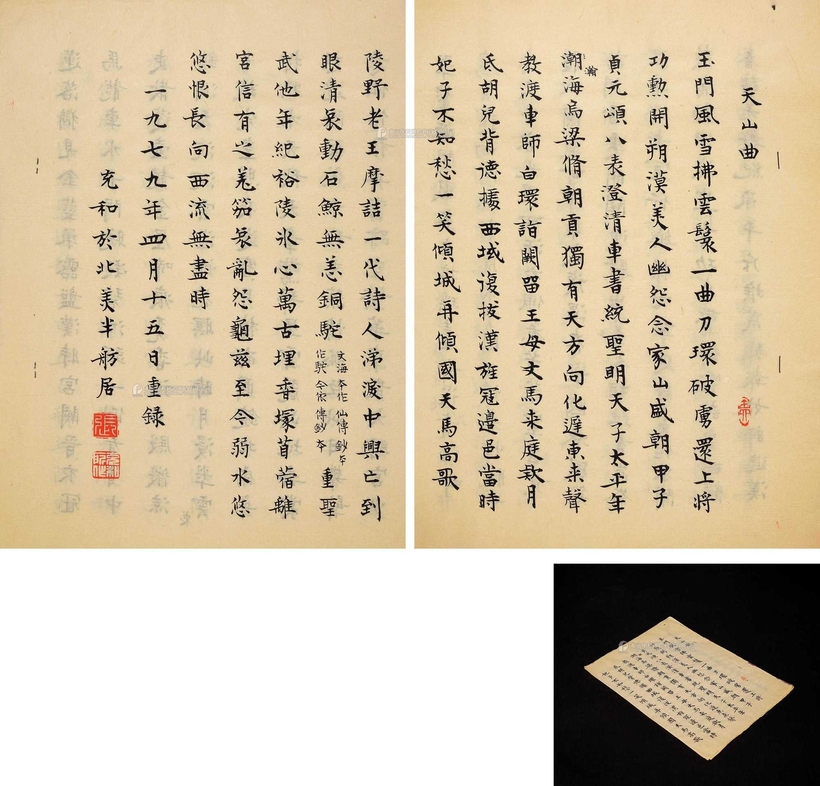 天山曲
玉門風雪拂雲鬟一曲刀環破虜還上將
功勲開朔漠美人幽怨念家山盛朝甲子
貞元頌八表澄清車書統聖明天子太平年
潮海烏梁脩朝貢獨有天方向化遲東来聲
瀚
教渡車師白環詣闕留王母文馬来庭欵月
氏胡兒背德擾西域復拔漢旌冦邊邑當時
妃子不知愁一笑傾城再傾國天馬高歌
陵野老王摩詰一代詩人涕淚中興亡到
眼清哀動石鯨無恙銅駝 文海本作仙傳鈔本作駝今依傳鈔本 重聖
武他年紀裕陵氷心萬古埋香塚苜蓿離
宮信有之羗笳哀亂怨龜兹至今弱水悠
悠恨長向西流無盡時
一九七九年四月十五日重録
充和於北美半舫居
張
充和